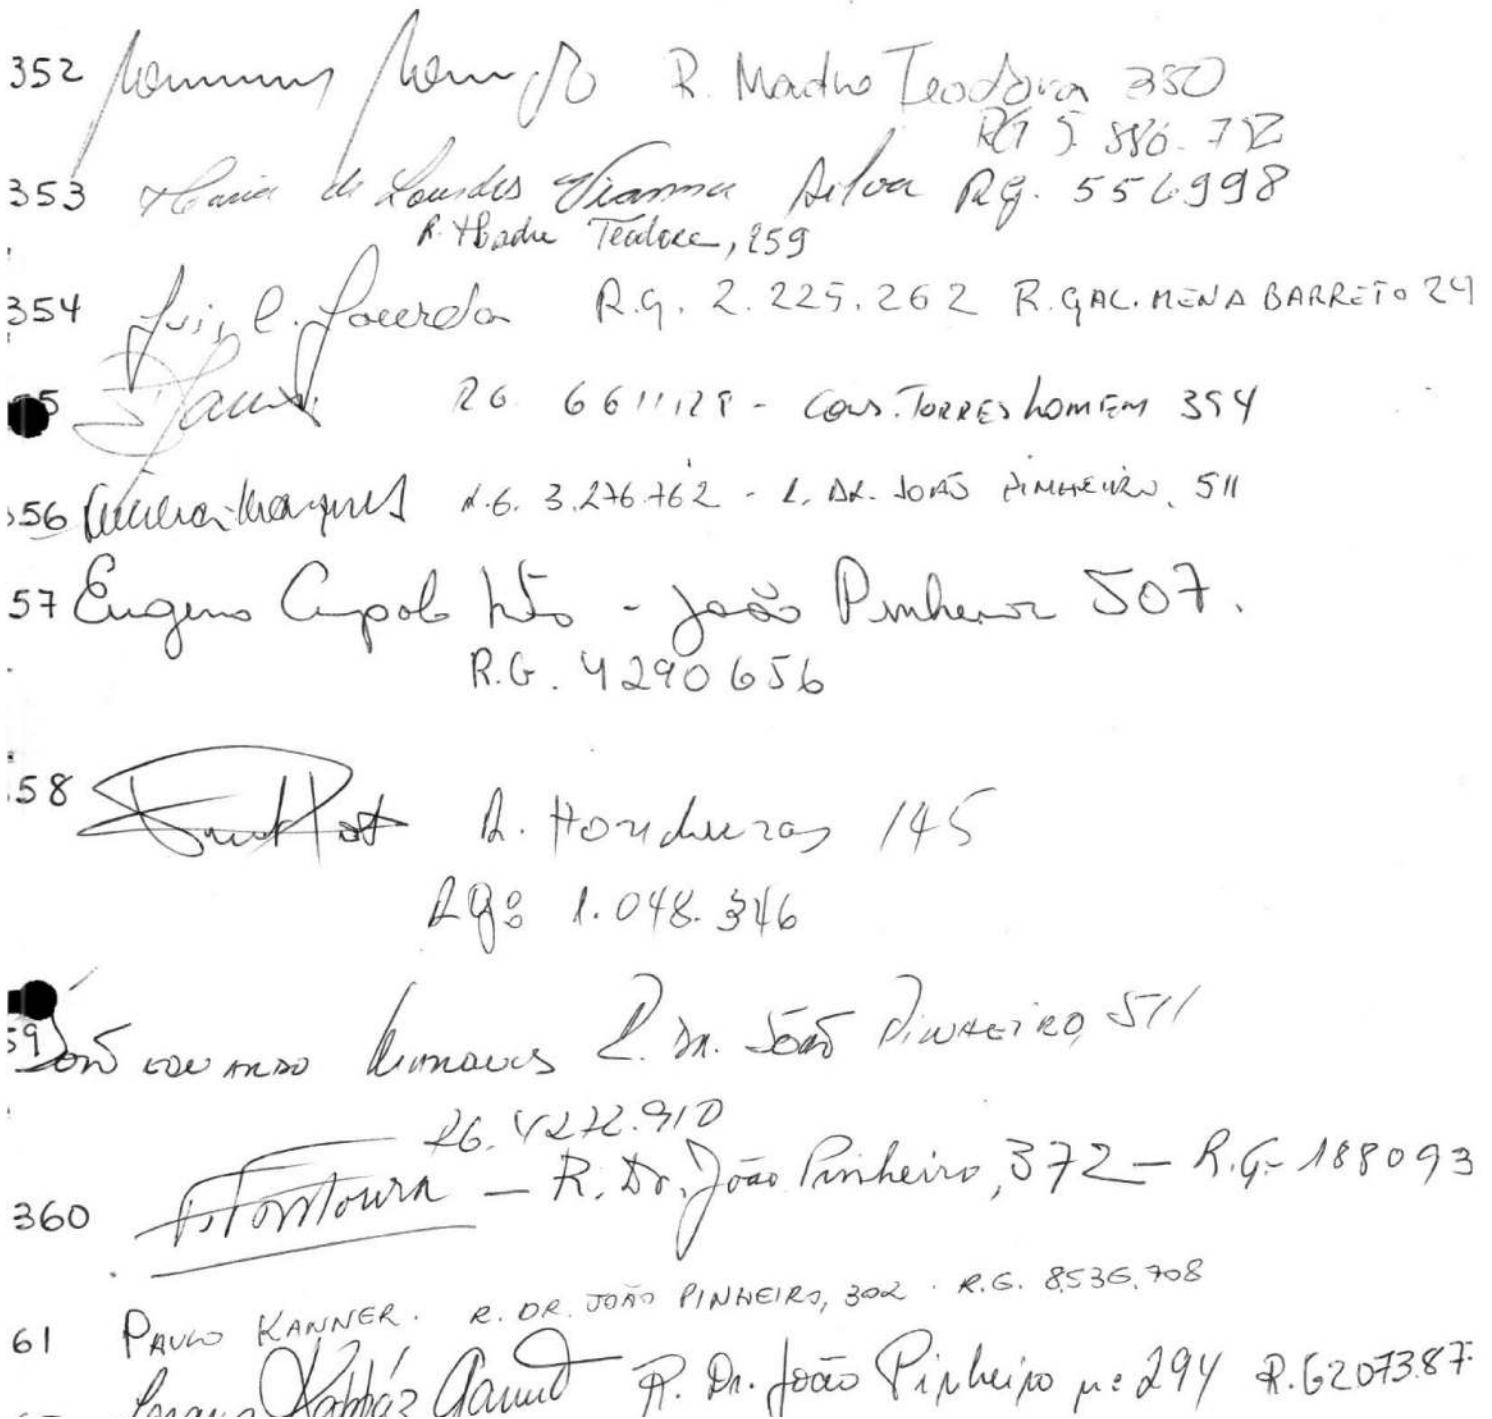 352 R. Madre Teodora 350
RG 5.886.752
353 Maria de Lourdes Vianna Silva RG. 556998
R. Madre Teodora, 259
354 Luiz C. Lacerda R.G. 2.225.262 R. GAL. MENA BARRETO 24
55 RG. 6611129 - CONS. TORRES HOMEM 394
56 Marques R.G. 3.276.762 - R. DR. JOÃO PINHEIRO, 511
57 Eugenio Cupolo Neto - João Pinheiro 507.
R.G. 4290656
58 R. Honduras 145
RG: 1.048.346
59 João EDUARDO R. DR. João PINHEIRO, 511
RG. 4272.910
360 Fontoura - R. Dr. João Pinheiro, 372 - R.G. 188093
61 PAULO KANNER. R. DR. JOÃO PINHEIRO, 302. R.G. 8.536.708
R. Dr. João Pinheiro nº 294 R.G 207387